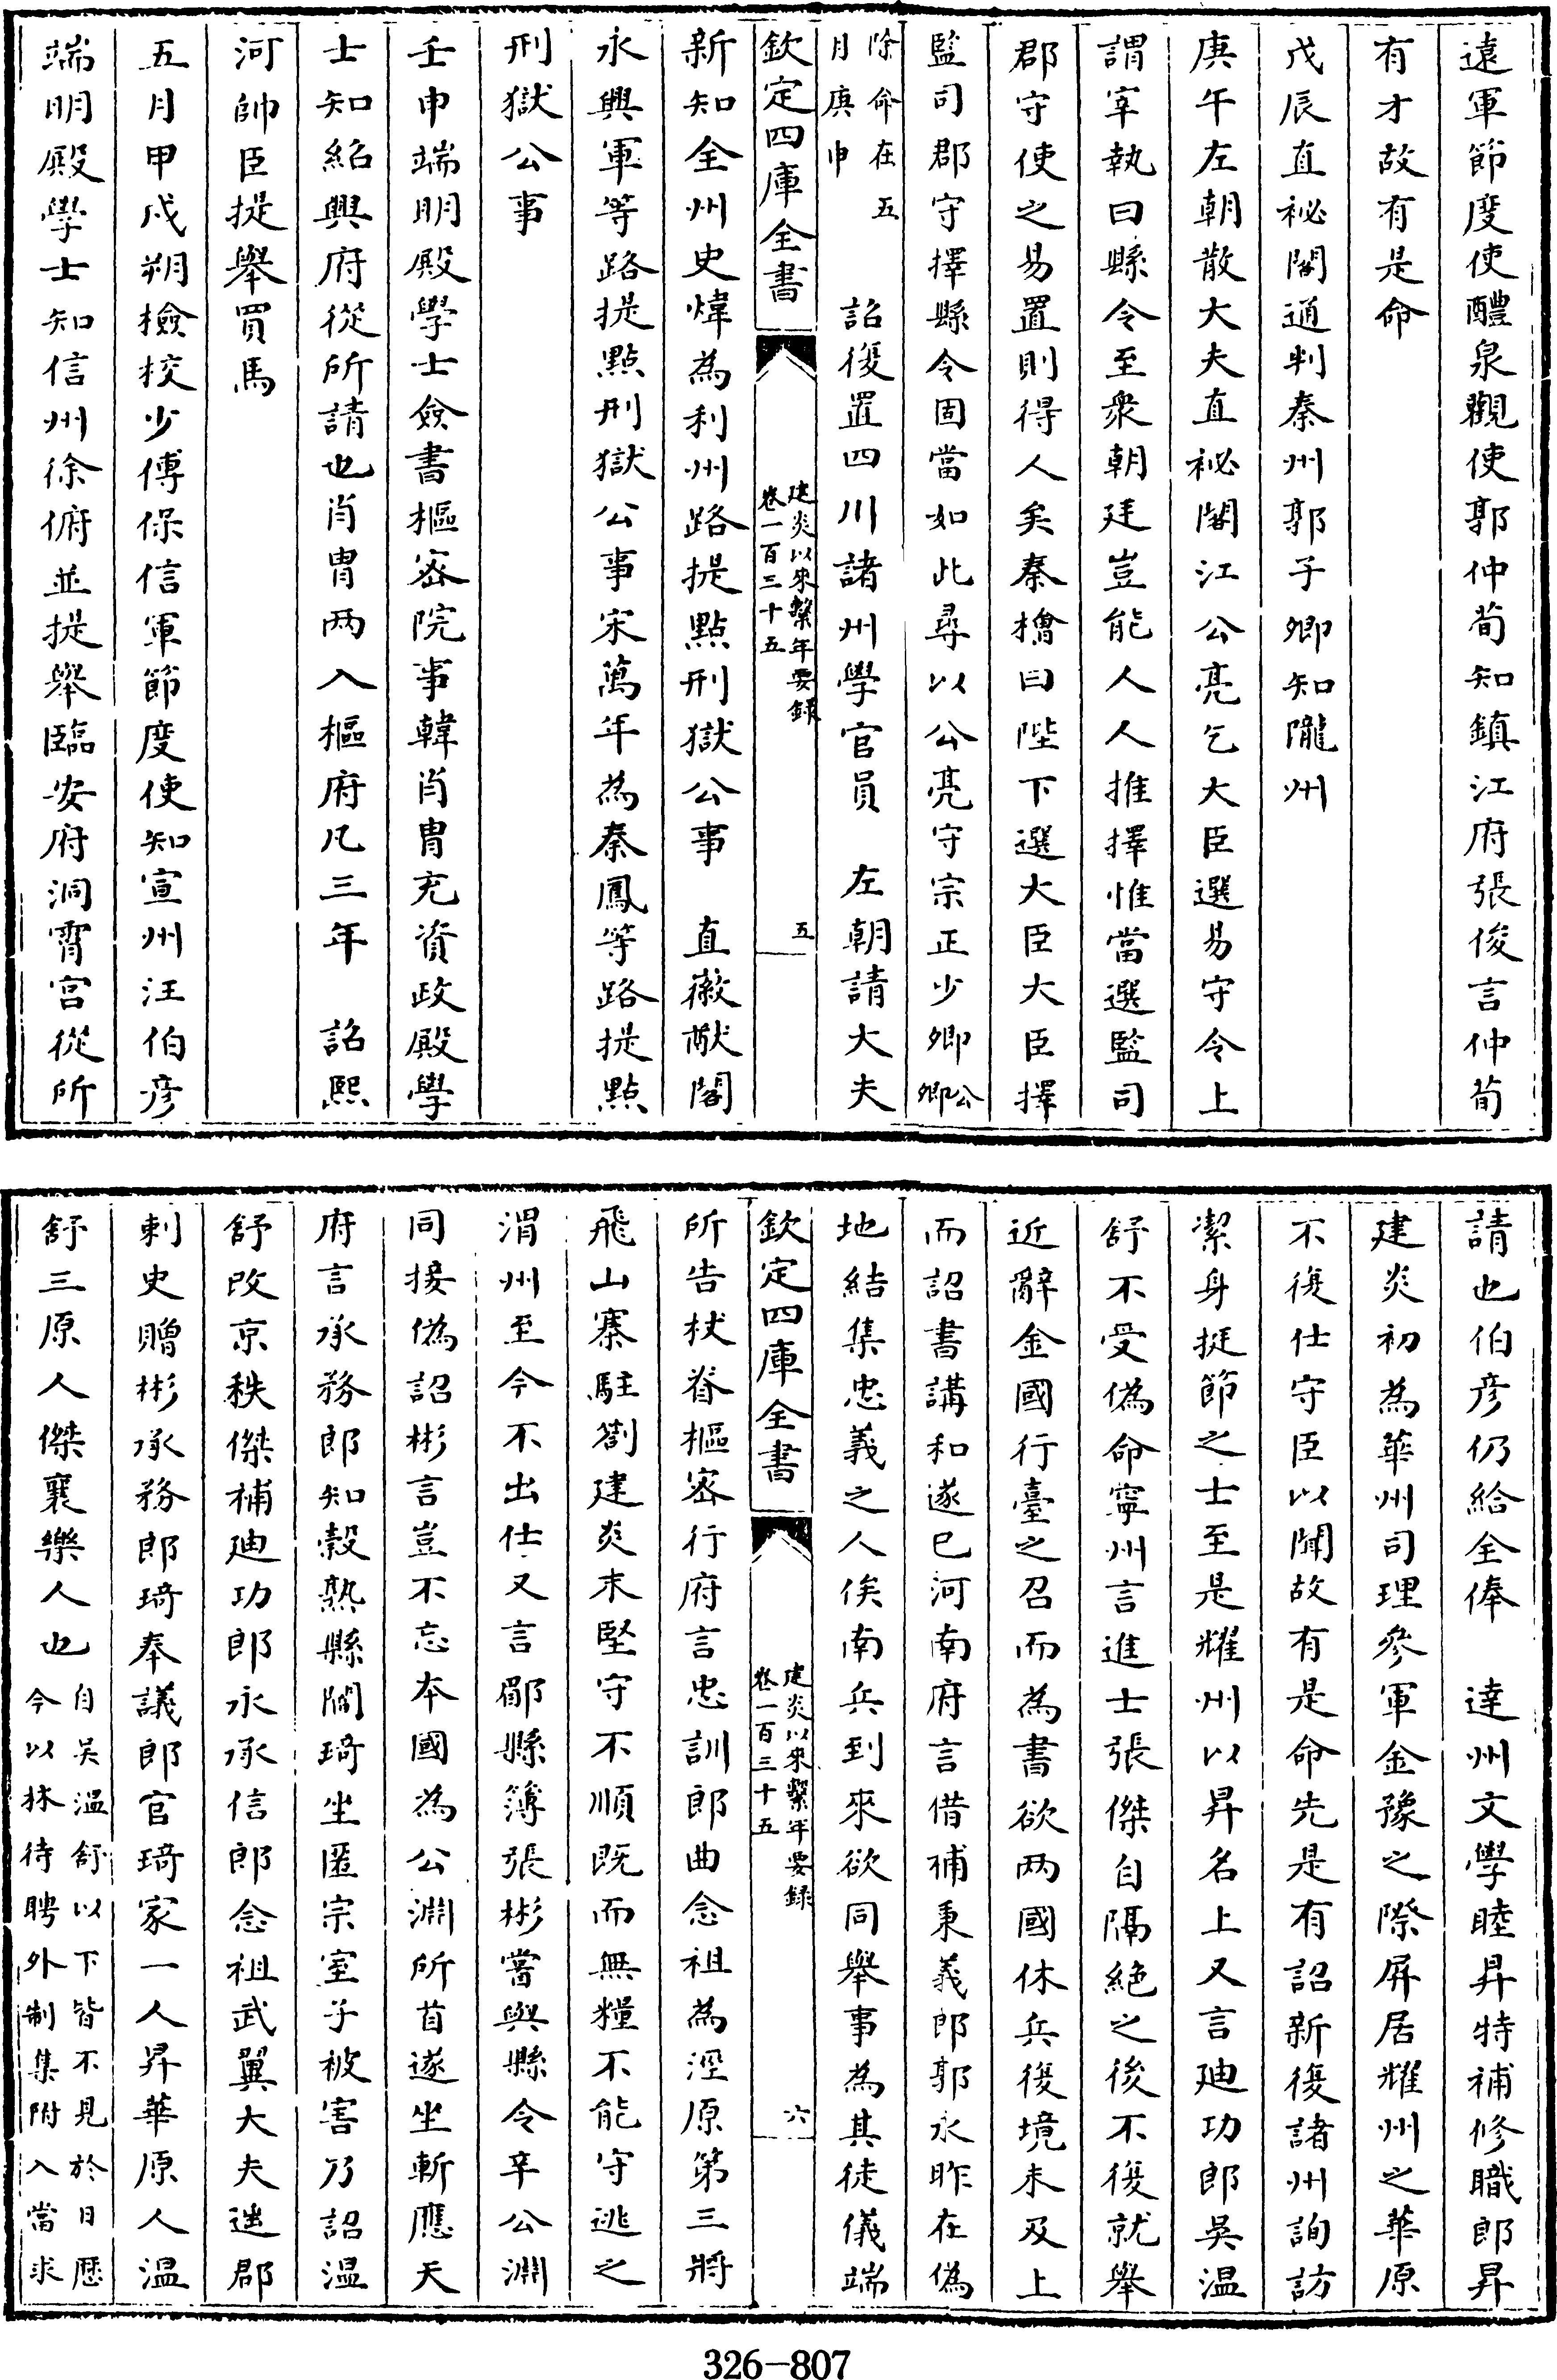 遠軍節度使醴泉觀使郭仲荀知鎮江府張俊言仲荀
有才故有是命
戊辰直祕閣通判秦州郭子卿知隴州
庚午左朝散大夫直祕閣江公亮乞大臣選易守令上
謂宰執曰縣令至衆朝廷豈能人人推擇惟當選監司
郡守使之易置則得人矣秦檜曰陛下選大臣大臣擇
監司郡守擇縣令固當如此尋以公亮守宗正少卿公卿
除命在五月庚申 詔復置四川諸州學官員 左朝請大夫
欽定四庫全書 建炎以來繫年要録卷一百三十五 五
新知全州史煒為利州路提點刑獄公事 直徽猷閣
永興軍等路提點刑獄公事宋萬年為秦鳳等路提點
刑獄公事
壬申端明殿學士僉書樞密院事韓肖胄充資政殿學
士知紹興府從所請也肖胄两入樞府凡三年 詔熙
河帥臣提舉買馬
五月甲戍朔檢校少傅保信軍節度使知宣州汪伯彦
端明殿學士知信州徐俯並提舉臨安府洞霄宫從所
請也伯彦仍給全俸 達州文學睦昇特補修職郎昇
建炎初為華州司理參軍金豫之際屏居耀州之華原
不復仕守臣以聞故有是命先是有詔新復諸州詢訪
潔身挺節之士至是耀州以昇名上又言廸功郎吳温
舒不受偽命寧州言進士張傑自隔絶之後不復就舉
近辭金國行臺之召而為書欲两國休兵復境未及上
而詔書講和遂已河南府言借補秉義郎郭永昨在偽
地結集忠義之人俟南兵到來欲同舉事為其徒儀端
欽定四庫全書 建炎以來繫年要録卷一百三十五 六
所告杖脊樞密行府言忠訓郎曲念祖為涇原第三將
飛山寨駐劄建炎末堅守不順既而無糧不能守逃之
渭州至今不出仕又言郿縣簿張彬嘗與縣令辛公淵
同接偽詔彬言豈不忘本國為公淵所首遂坐斬應天
府言承務郎知穀熟縣閻琦坐匿宗室子被害乃詔温
舒改京秩傑補廸功郎永承信郎念祖武翼大夫遥郡
刺史贈彬承務郎琦奉議郎官琦家一人昇華原人温
舒三原人傑襄樂人也自吳温舒以下皆不見於日歷今以林待聘外制集附入當求
326-807